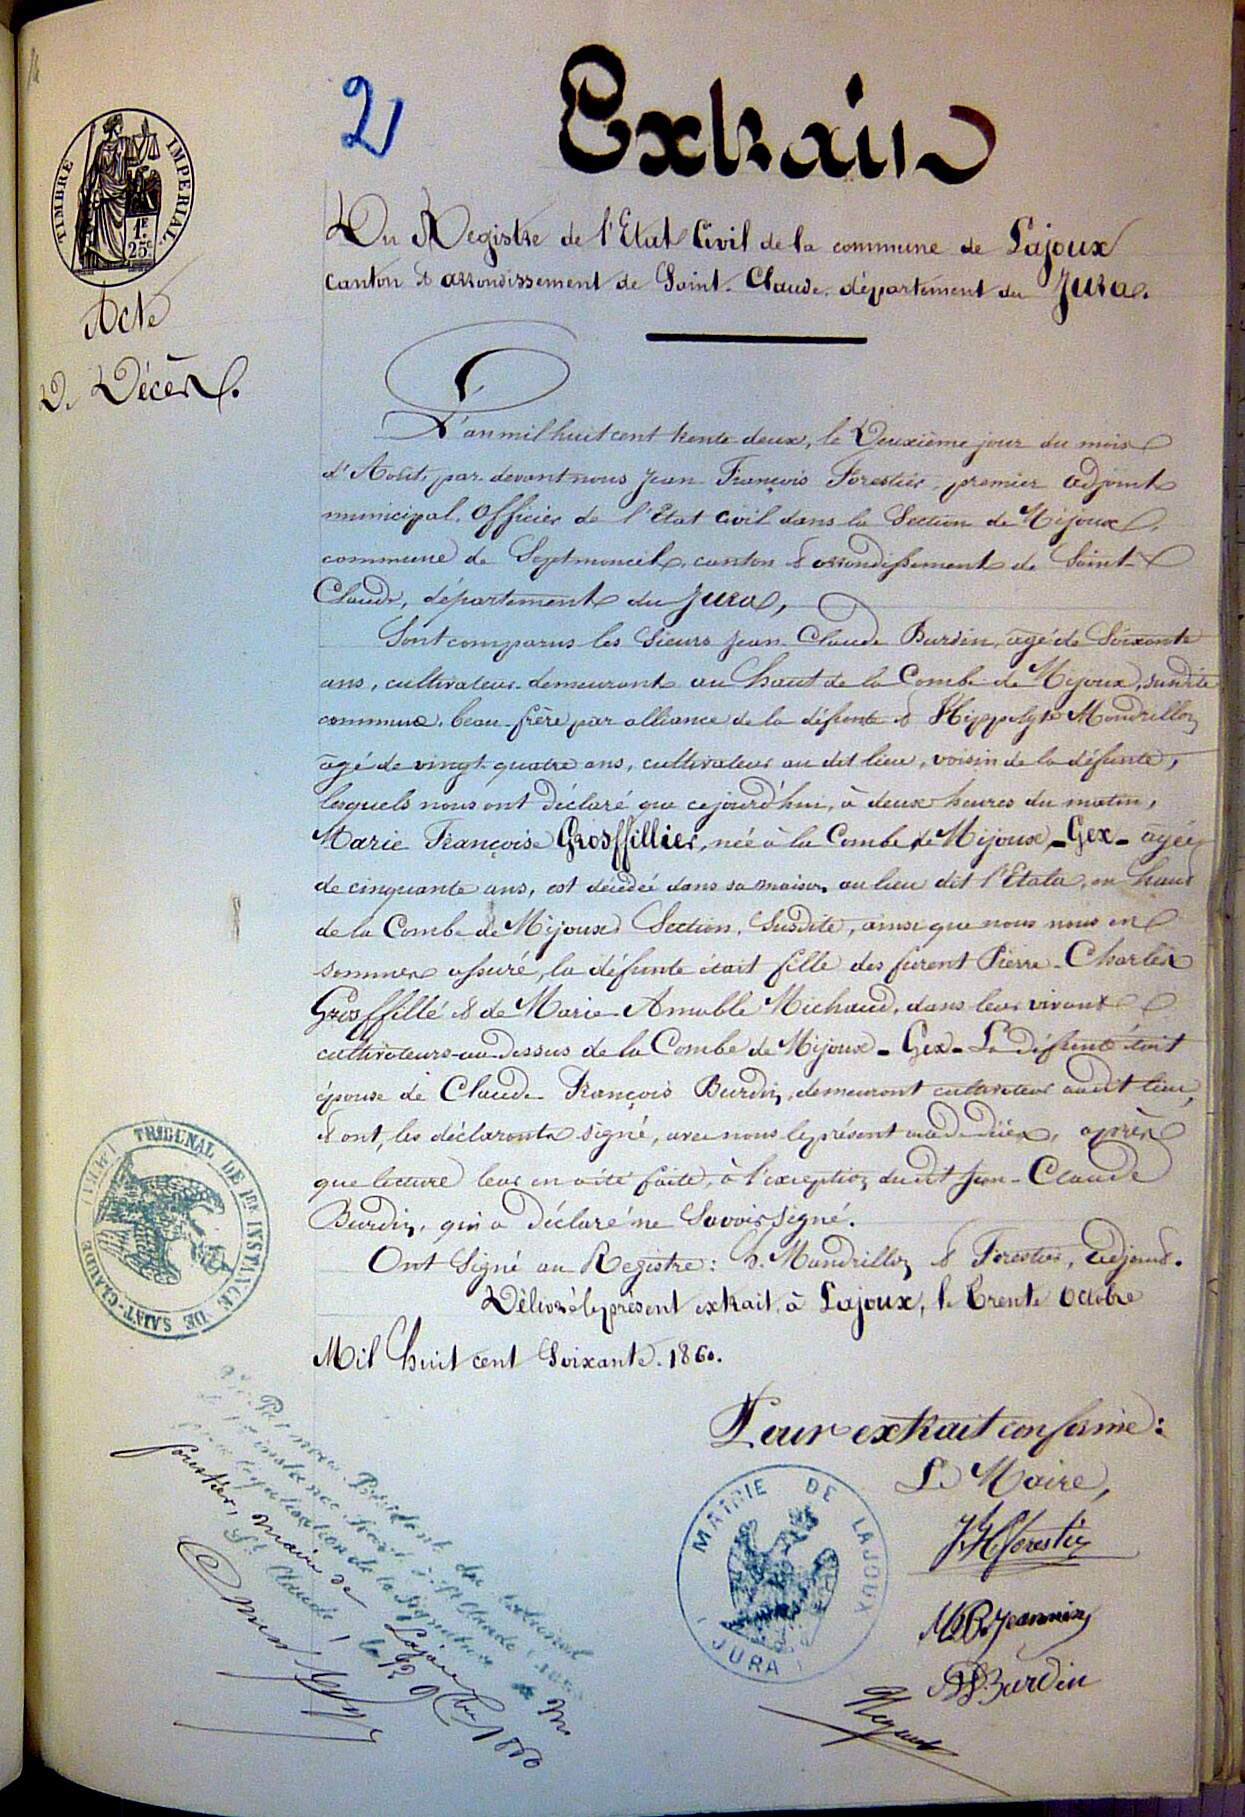 2
Extrait
TIMBRE IMPERIAL.
1F
25c
Du Registre de l'Etat Civil de la commune de Lajoux
canton & arrondissement de Saint-Claude, département du Jura.
Acte
De Décès.
L'an mil huit cent trente deux, le Deuxième jour du mois
d'Août, par-devant nous Jean François Forestier, premier adjoint
municipal, Officier de l'Etat Civil dans la Section de Mijoux,
commune de Septmoncel, canton & arrondissement de Saint-
Claude, département du Jura,
Sont comparus les Sieurs Jean-Claude Burdin, âgé de Soixante
ans, cultivateur demeurant au haut de la Combe de Mijoux, susdite
commune, beau-frère par alliance de la défunte & Hippolyte Mandrillon
âgé de vingt-quatre ans, cultivateur au dit lieu, voisin de la défunte,
lesquels nous ont déclaré que cejourd'hui, à deux heures du matin,
Marie Françoise Grosffillier, née à la Combe de Mijoux - Gex - âgée
de cinquante ans, est décédée dans sa maison au lieu dit l'Etala, en haut
de la Combe de Mijoux Section Susdite, ainsi que nous nous en
sommes assuré, la défunte était fille des furent Pierre-Charles
Grosffillé & de Marie-Amable Michaud, dans leur vivant
cultivateurs au-dessus de la Combe de Mijoux - Gex - La défunte était
épouse de Claude François Burdin, demeurant cultivateur audit lieu,
& ont, les déclarants signé, avec nous le présent acte de décès, après
que lecture leur en a été faite, à l'exception dudit Jean-Claude
Burdin, qui a déclaré ne Savoir signé.
Ont Signé au Registre: h. Mandrillon & Forestier, adjoint.
Délivré le présent extrait, à Lajoux, le trente Octobre
Mil huit cent Soixante. 1860.
TRIBUNAL DE 1RE INSTANCE DE SAINT-CLAUDE
Pour extrait conforme:
Le Maire,
MAIRIE DE LAJOUX
(JURA)
Président du tribunal
de 1re instance séant à St Claude (Jura)
pour légalisation de la signature de M
forestier, maire de Lajoux
St Claude, le 12 9bre 1860
Forestier
Jeannin
Burdin